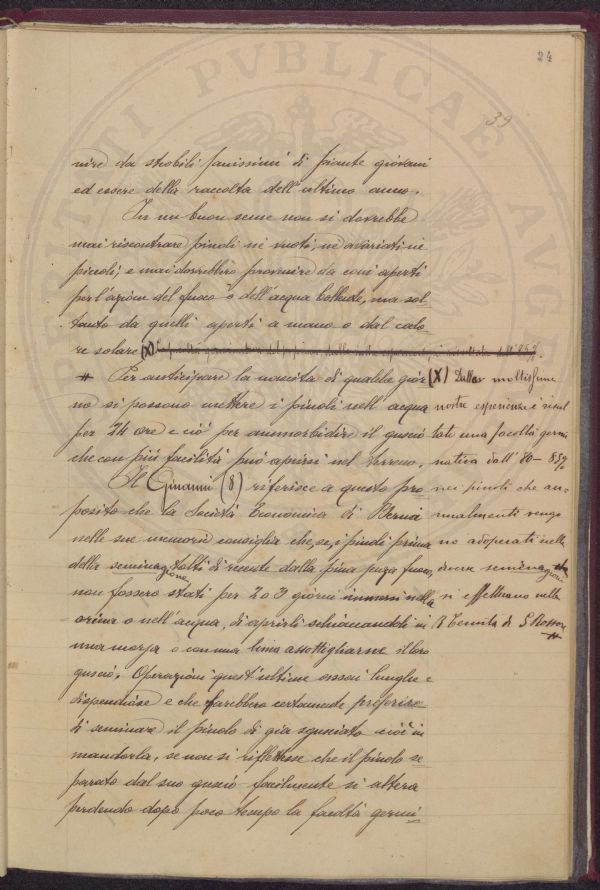 24
39
nire da strobili sanissimi di piante giovani
ed essere della raccolta dell'ultimo anno.
Per un buon seme non si dovrebbe
mai riscontrare pinoli nè vuoti, nè avariati nè
piccoli; e mai dovrebbero provenire da coni aperti
per l'azione del fuoco o dell'acqua bollente, ma sol-
tanto da quelli aperti a mano o dal calo-
re solare (X)
# Per anticipare la nascita di qualche gior
no si possono mettere i pinoli nell'acqua
per 24 ore e ciò per ammorbidire il guscio
che con più facilità può aprirsi nel terreno.
Il Ginanni (8) riferisce a questo pro
posito che la Società Economica di Berna
nelle sue memorie consiglia che, se, i pinoli prima
della seminagione, tolti di recente dalla pina senza fuoco,
non fossero stati per 2 o 3 giorni immersi nella
orina o nell'acqua, di aprirli schiacciandoli in
una morsa o con una lima assottigliarne il loro
guscio. Operazioni quest'ultime assai lunghe e
dispendiose e che farebbero certamente preferire
di seminare il pinolo di già sgusciato cioè in
mandorla, se non si riflettesse che il pinolo se
parato dal suo guscio facilmente si altera
perdendo dopo poco tempo la facoltà germi-
(X) Dalle moltissime
nostre esperienze è risul
tata una facoltà germi
nativa dall'80-85%
nei pinoli che an-
nualmente vengo
no adoperati nelle
diverse seminagioni
si effettuano nella
R Tenuta di S. Rossore
#